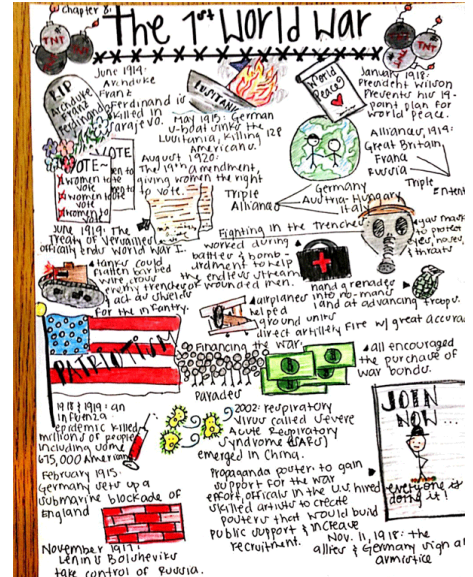 Chapter 8:
The 1st World War
TNT
TNT
TNT
RIP
Archduke
Franz
Ferdinand
June 1914:
Archduke
Franz
Ferdinand is
killed in
Sarajevo.
LUSITANIA
May 1915: German
U-boat sinks the
Lusitania, killing 128
Americans.
World
Peace?
January 1918:
President Wilson
Presents his 14-
point plan for
world peace.
VOTE
VOTE~
women to
vote
women to
vote
women to
August 1920:
The 19th amendment
giving women the right
to vote.
Alliances, 1914:
Great Britain
France
Russia
Triple
Entente
Triple
Alliance
Germany
Austria-Hungary
Italy
June 1919: The
Treaty of Versailles
officially ends World War I.
Fighting in the Trenches
worked during
battles & bomb-
ardment to help
the endless stream
of wounded men.
gas masks
to protect
eyes, noses,
& throats
tanks could
flatten barbed
wire, cross
enemy trenches
& act as shields
for the infantry.
hand grenades
into no-man's
land at advancing troops.
airplanes
helped
ground units
direct artillery fire w/ great accurac
PATRIOTISM
Financing the war:
Parades
all encouraged
the purchase of
war bonds.
1918 & 1919: an
influenza
epidemic killed
millions of people
including some
675,000 Americans
2002: respiratory
virus called Severe
Acute Respiratory
Syndrome (SARS)
emerged in China.
JOIN
NOW...
everyone is
doing it!
February 1915:
Germany sets up a
submarine blockade of
England
Propaganda posters: to gain
support for the war
effort, officials in the U.S. hired
skilled artists to create
posters that would build
public support & increase
recruitment.
November 1917:
Lenin's Bolsheviks
take control of Russia.
Nov. 11, 1918: the
allies & Germany sign a
armistice